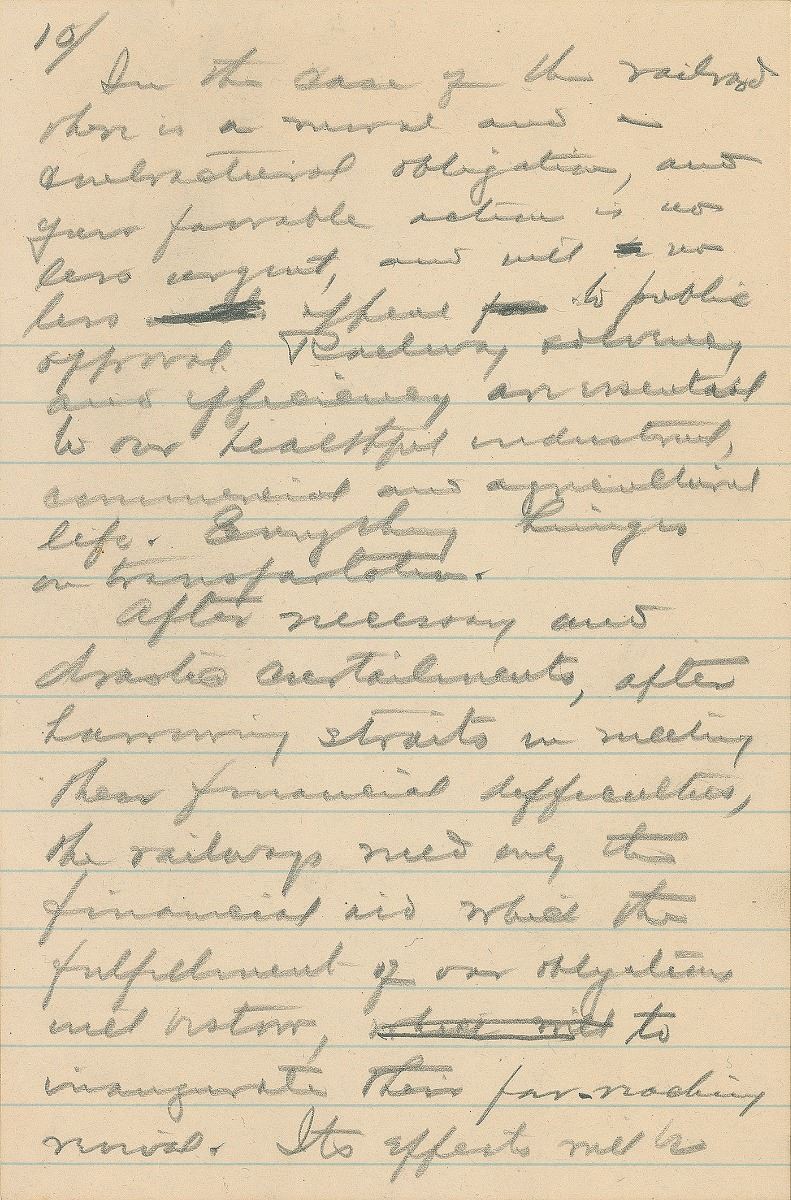 10/
In the case of the railroad
there is a moral and a
contractural obligation, and
your favorable action is no
less urgent, and will no
less appeal to public
approval. Railway solvency
and efficiency are essential
to our healthful industrial,
commercial and agricultural
life. Everything hinges
on transportation.
After necessary and
drastic curtailments, after
harrowing straits in meeting
their financial difficulties,
the railways need only this
financial aid which the
fulfillment of our obligations
will bestow, which will to
inaugurate their far-reaching
revival. Its effects will be